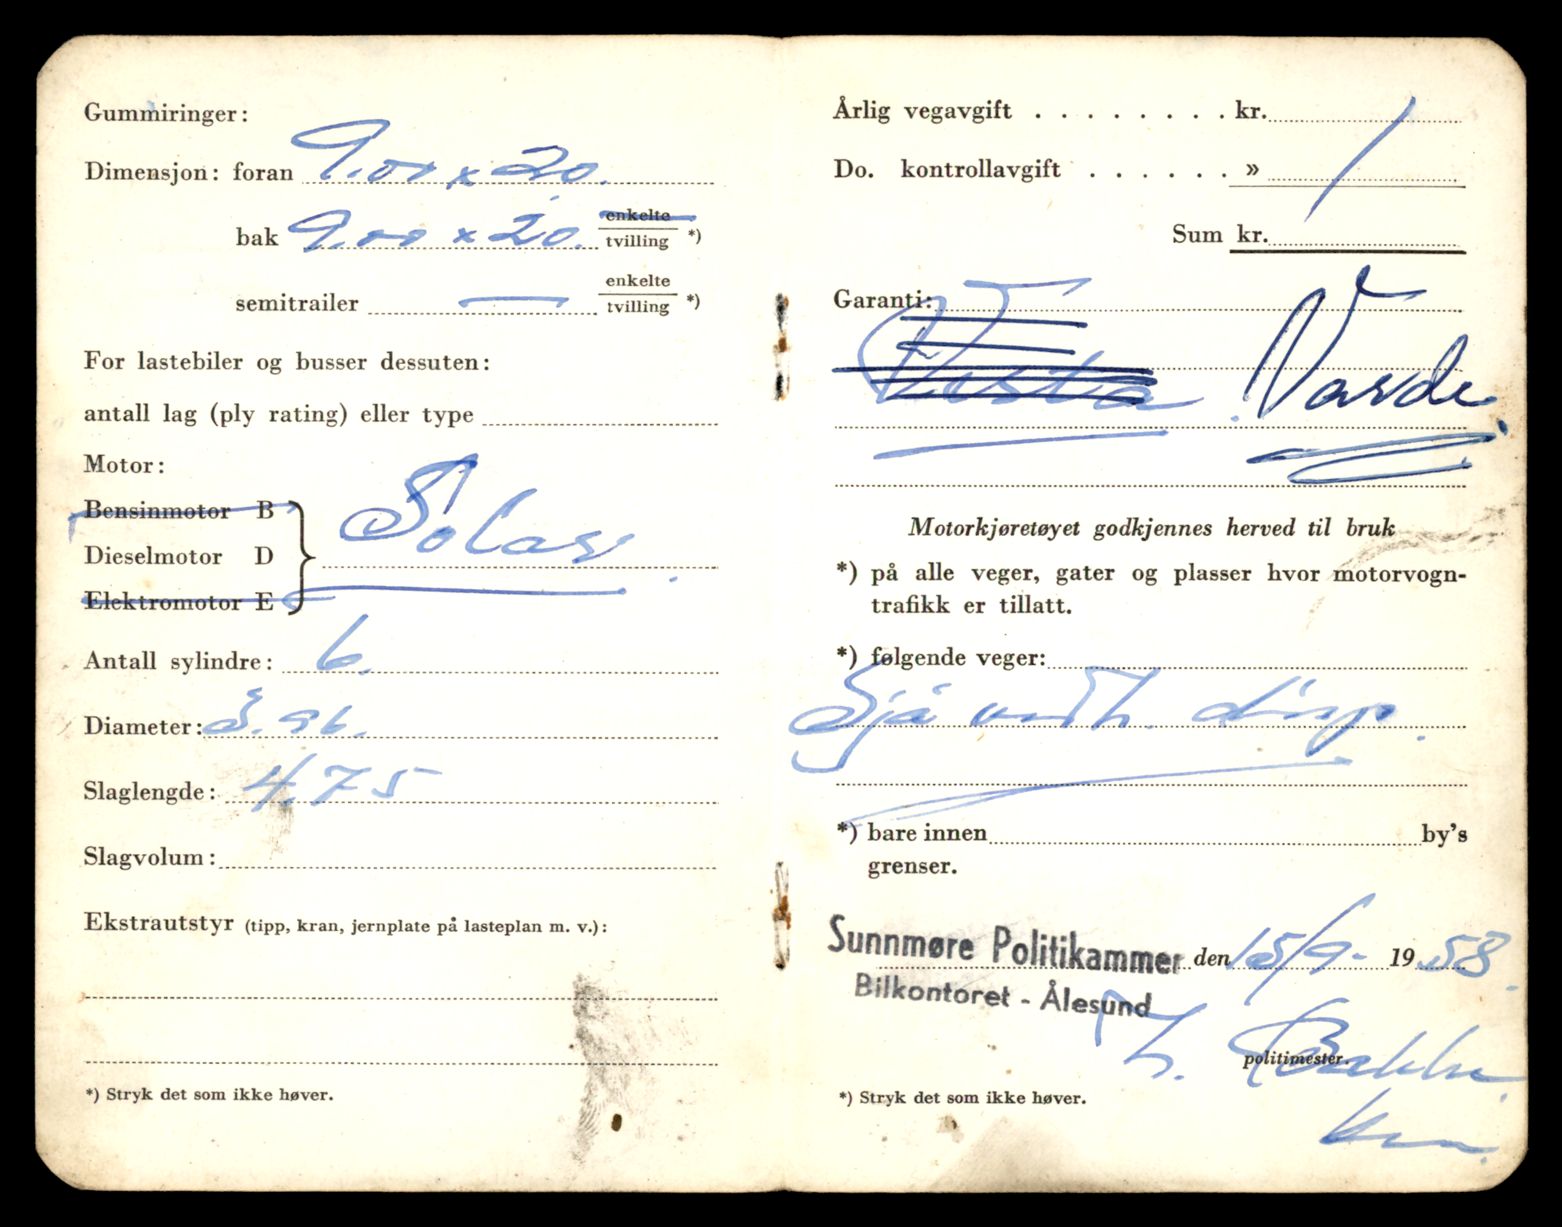 Gummiringer:
Dimensjon: foran 9.00 x 20.
bak 9.00 x 20. enkelte
tvilling *)
semitrailer — enkelte
tvilling *)
For lastebiler og busser dessuten:
antall lag (ply rating) eller type
Motor:
Bensinmotor B
Dieselmotor D
Elektromotor E
Solar
Antall sylindre: 6.
Diameter: 3.96.
Slaglengde: 4.75
Slagvolum:
Ekstrautstyr (tipp, kran, jernplate på lasteplan m. v.):
*) Stryk det som ikke høver.
Årlig vegavgift . . . . . . . . kr.
Do. kontrollavgift . . . . . . »
Sum kr.
Garanti:
Vesta Varde
Motorkjøretøyet godkjennes herved til bruk
*) på alle veger, gater og plasser hvor motorvogn-
trafikk er tillatt.
*) følgende veger:
Sjå vedh. disp.
*) bare innen by's
grenser.
Sunnmøre Politikammer den 15/9- 1958.
Bilkontoret - Ålesund
politimester.
*) Stryk det som ikke høver.